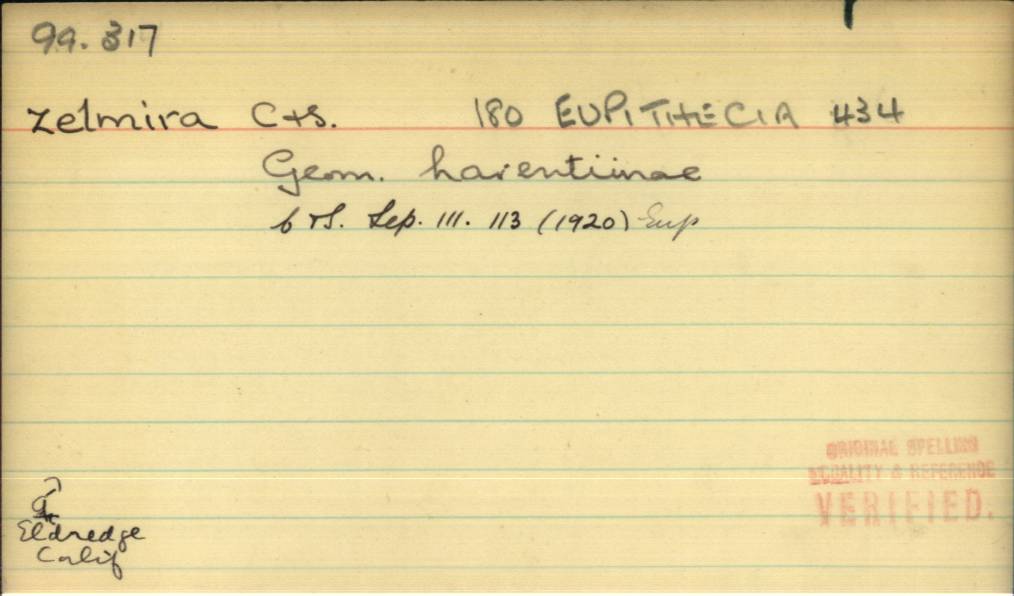 99. 317
zelmira C+S. 180 EUPITHECIA 434
Geom. larentiinae
C+S. Lep. III. 113 (1920) Eup
Eldredge
Calif
ORIGINAL SPELLING
LOCALITY & REFERENCE
VERIFIED.